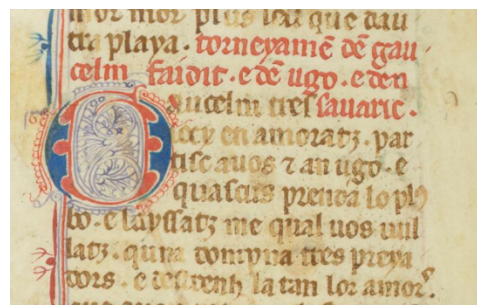 mor mor plus lai que dau
tra playa. torneyamē dē gau
celm faidit. e dē ugo. e den
aucelm tres savaric.
iocx enamoratz. par
tisc avos ⁊ an ugo. e
quascus prenda lo pl9
bo. e layssatz me qual vos vul
latz. quna dompna tres preya
dors. e destrenh la tan lor amor